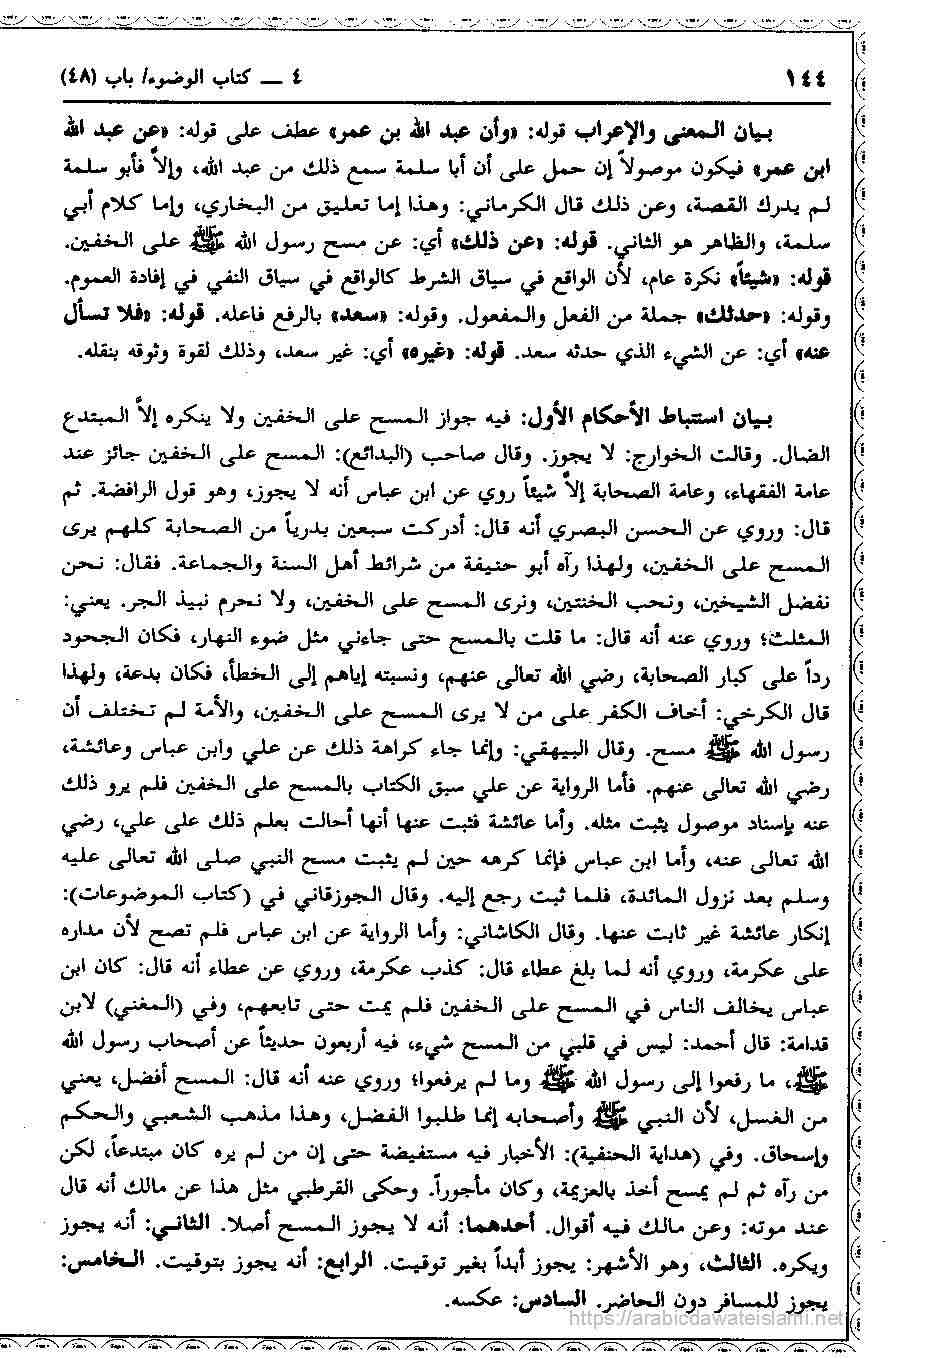 ١٤٤ ٤ ــ كتاب الوضوء/ باب (٤٨)
بيان المعنى والإعراب قوله: «وأن عبد الله بن عمر» عطف على قوله: «عن عبد الله
ابن عمر» فيكون موصولاً إن حمل على أن أبا سلمة سمع ذلك من عبد الله، وإلاَّ فأبو سلمة
لم يدرك القصة، وعن ذلك قال الكرماني: وهذا إما تعليق من البخاري، وإما كلام أبي
سلمة، والظاهر هو الثاني. قوله: «عن ذلك» أي: عن مسح رسول الله ﷺ على الخفين.
قوله: «شيئاً» نكرة عام، لأن الواقع في سياق الشرط كالواقع في سياق النفي في إفادة العموم.
وقوله: «حدثك» جملة من الفعل والمفعول. وقوله: «سعد» بالرفع فاعله. قوله: «فلا تسأل
عنه» أي: عن الشيء الذي حدثه سعد. قوله: «غيره» أي: غير سعد، وذلك لقوة وثوقه بنقله.
بيان استنباط الأحكام الأول: فيه جواز المسح على الخفين ولا ينكره إلاَّ المبتدع
الضال. وقالت الخوارج: لا يجوز. وقال صاحب (البدائع): المسح على الخفين جائز عند
عامة الفقهاء، وعامة الصحابة إلاَّ شيئاً روي عن ابن عباس أنه لا يجوز، وهو قول الرافضة. ثم
قال: وروي عن الحسن البصري أنه قال: أدركت سبعين بدرياً من الصحابة كلهم يرى
المسح على الخفين، ولهذا رآه أبو حنيفة من شرائط أهل السنة والجماعة. فقال: نحن
نفضل الشيخين، ونحب الختنين، ونرى المسح على الخفين، ولا نحرم نبيذ الجر. يعني:
المثلث؛ وروي عنه أنه قال: ما قلت بالمسح حتى جاءني مثل ضوء النهار، فكان الجحود
رداً على كبار الصحابة، رضي الله تعالى عنهم، ونسبته إياهم إلى الخطأ، فكان بدعة، ولهذا
قال الكرخي: أخاف الكفر على من لا يرى المسح على الخفين، والأمة لم تختلف أن
رسول الله ﷺ مسح. وقال البيهقي: وإنما جاء كراهة ذلك عن علي وابن عباس وعائشة،
رضي الله تعالى عنهم. فأما الرواية عن علي سبق الكتاب بالمسح على الخفين فلم يرو ذلك
عنه بإسناد موصول يثبت مثله. وأما عائشة فثبت عنها أنها أحالت بعلم ذلك على علي، رضي
الله تعالى عنه، وأما ابن عباس فإنما كرهه حين لم يثبت مسح النبي صلى الله تعالى عليه
وسلم بعد نزول المائدة، فلما ثبت رجع إليه. وقال الجوزقاني في (كتاب الموضوعات):
إنكار عائشة غير ثابت عنها. وقال الكاشاني: وأما الرواية عن ابن عباس فلم تصح لأن مداره
على عكرمة، وروي أنه لما بلغ عطاء قال: كذب عكرمة، وروي عن عطاء أنه قال: كان ابن
عباس يخالف الناس في المسح على الخفين فلم يمت حتى تابعهم، وفي (المغني) لابن
قدامة: قال أحمد: ليس في قلبي من المسح شيء، فيه أربعون حديثاً عن أصحاب رسول الله
ﷺ، ما رفعوا إلى رسول الله ﷺ وما لم يرفعوا؛ وروي عنه أنه قال: المسح أفضل، يعني
من الغسل، لأن النبي ﷺ وأصحابه إنما طلبوا الفضل، وهذا مذهب الشعبي والحكم
وإسحاق. وفي (هداية الحنفية): الأخبار فيه مستفيضة حتى إن من لم يره كان مبتدعاً، لكن
من رآه ثم لم يمسح أخذ بالعزيمة، وكان مأجوراً. وحكى القرطبي مثل هذا عن مالك أنه قال
عند موته: وعن مالك فيه أقوال. أحدهما: أنه لا يجوز المسح أصلا. الثاني: أنه يجوز
ويكره. الثالث، وهو الأشهر: يجوز أبداً بغير توقيت. الرابع: أنه يجوز بتوقيت. الخامس:
يجوز للمسافر دون الحاضر. السادس: عكسه.
https://arabicdawateislami.net